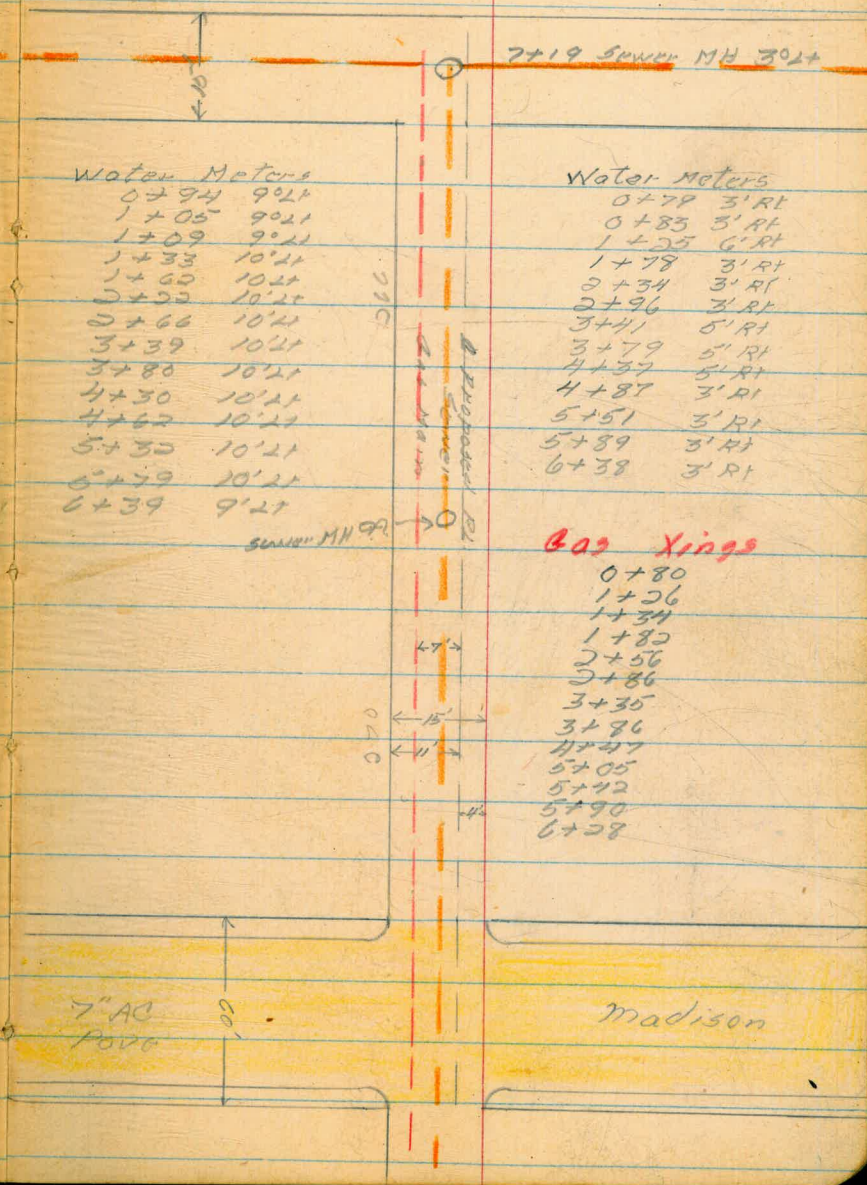 7+19 Sewer MH 3°Lt
15'
Water Meters
0+94 9°Lt
1+05 9°Lt
1+09 9°Lt
1+33 10'Lt
1+62 10Lt
2+22 10'Lt
2+66 10'Lt
3+39 10'Lt
3+80 10'Lt
4+30 10'Lt
4+62 10'Lt
5+32 10'Lt
5+79 10'Lt
6+39 9'Lt
Sewer MH
Gas Main
Sewer
Proposed
Water Meters
0+79 3'Rt
0+83 3'Rt
1+25 6'Rt
1+78 3'Rt
2+34 3'Rt
2+96 3'Rt
3+41 5'Rt
3+79 5'Rt
4+37 5'Rt
4+87 3'Rt
5+51 3'Rt
5+89 3'Rt
6+38 3'Rt
Gas Xings
0+80
1+26
1+34
1+82
2+56
2+86
3+35
3+86
4+47
5+05
5+42
5+90
6+28
7'
15'
11'
4'
7" AC
Pave
60'
Madison